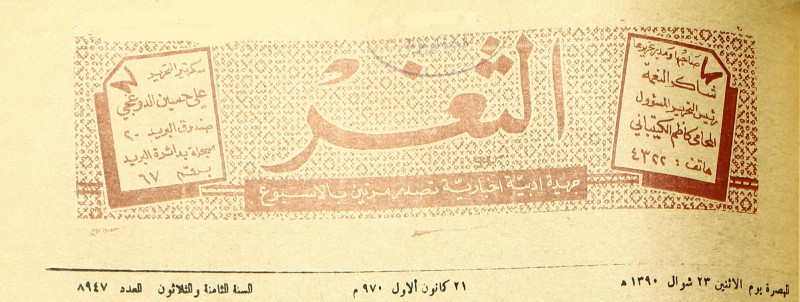 صاحبها ومدير تحريرها
شاكر النعمة
رئيس التحرير المسؤول
المحامي كاظم الكتيباني
هاتف : ٤٣٢٢
الثغر
سكرتير التحرير
علي حسين الدوغجي
صندوق البريد - ٢
مسجلة بدائرة البريد
برقم ٦٧
جريدة ادبية اخبارية تصدر مرتين بالاسبوع
البصرة يوم الاثنين ٢٣ شوال ١٣٩٠ هـ
٢١ كانون الاول ٩٧٠ م
السنة الثامنة والثلاثون العدد ٨٩٤٧